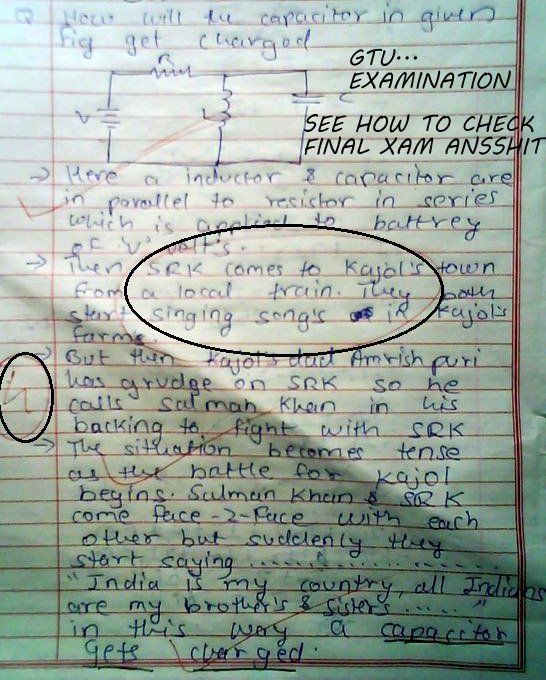 Q How will the capacitor in given
fig get charged
R
GTU...
EXAMINATION
V
L
C
SEE HOW TO CHECK
FINAL XAM ANSSHIT
→ Here a inductor & capacitor are
in parallel to resistor in series
which is applied to battrey
of 'V' volt's.
→ Then SRK comes to Kajol's town
from a local train. They both
start singing song's in Kajol's
farms.
→ But then Kajol's dad Amrish puri
has grudge on SRK so he
calls Salman Khan in his
backing to fight with SRK
→ The situation becomes tense
as the battle for Kajol
begins. Salman Khan & SRK
come face-2-face with each
other but suddenly they
start saying ........................
"India is my country, all Indians
are my brother's & sisters ....."
in this way a capacitor
gets charged.